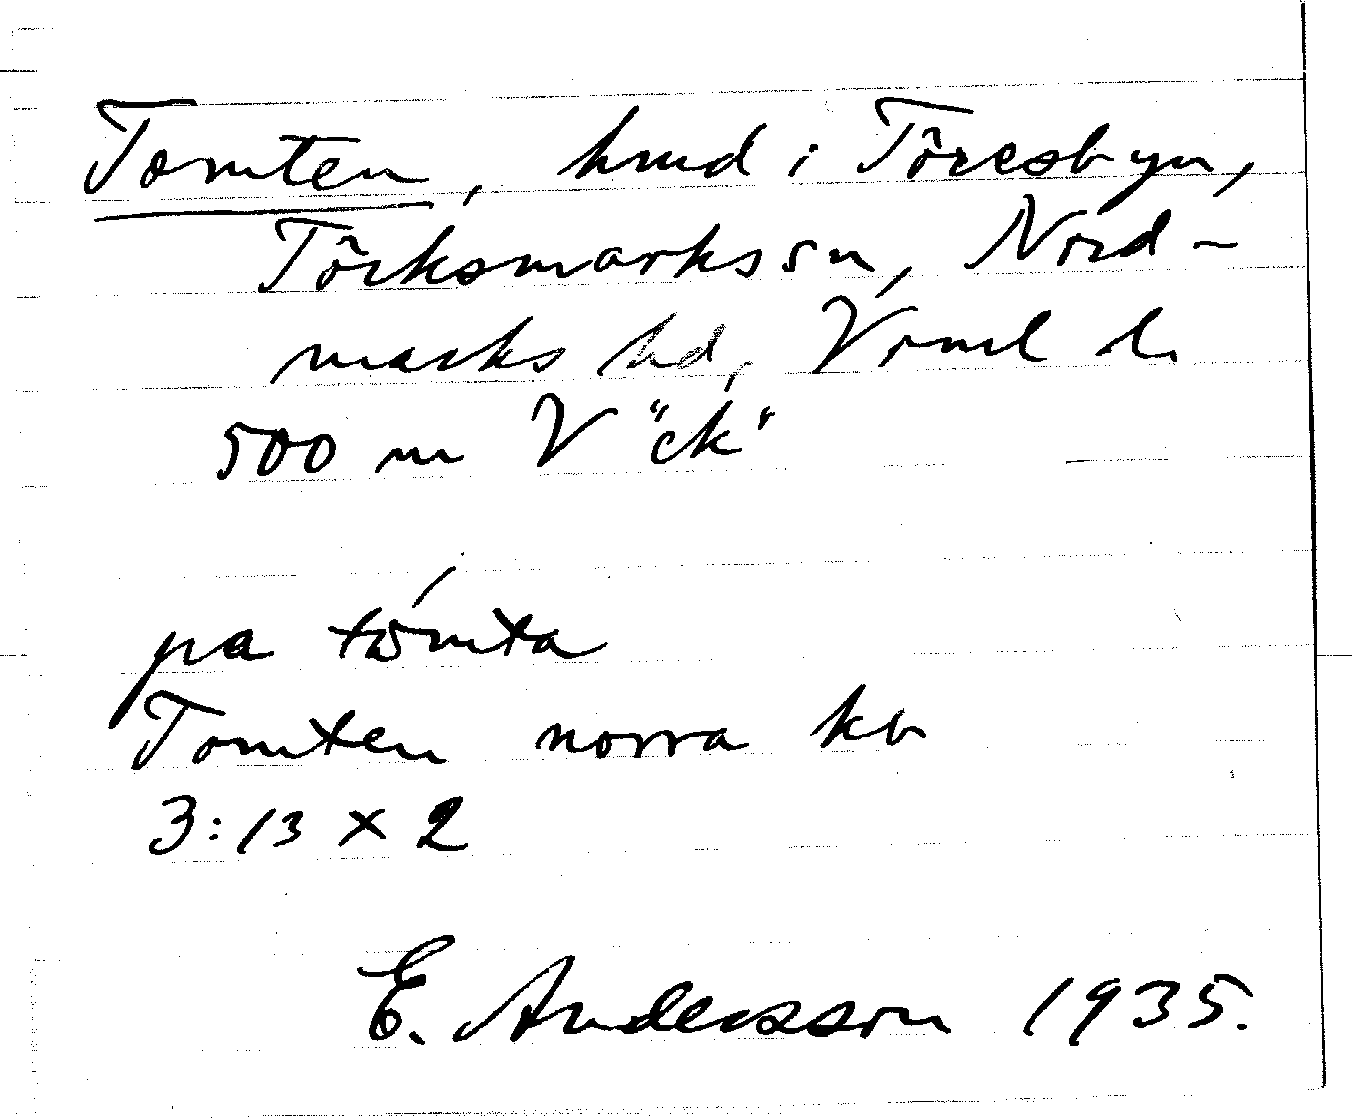 Tomten, hmd i Töresbyn,
Töcksmarks sn, Nord-
marks hd, Värml l.
500 m V "ck"
pa tômta
Tomten norra kb
3:13 x 2
E. Andersson 1935.